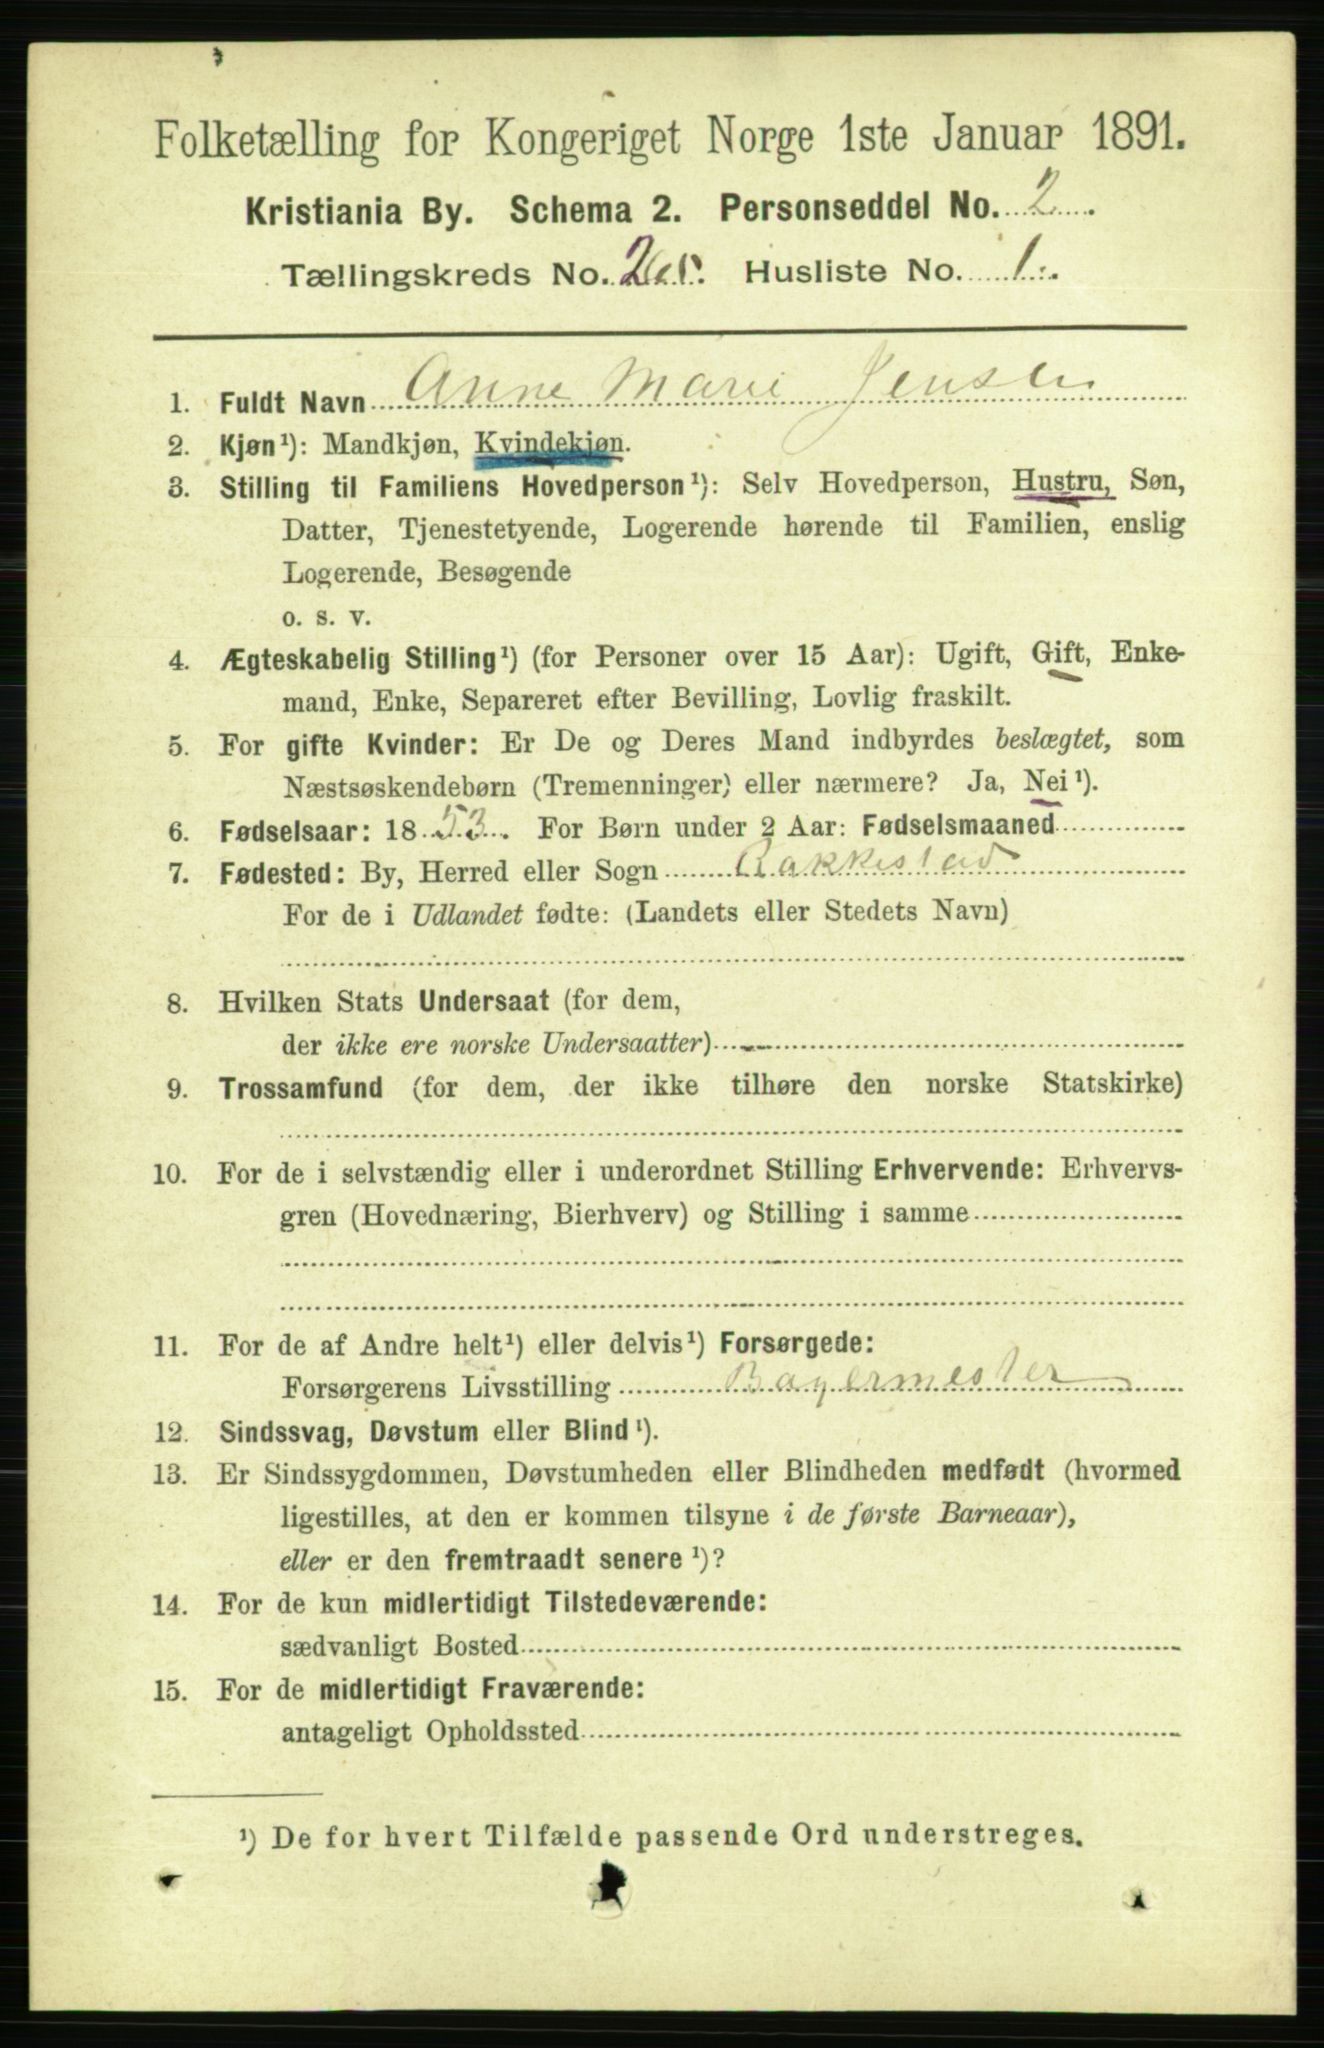 Folketælling for Kongeriget Norge 1ste Januar 1891.
Kristiania By. Schema 2. Personseddel No. 2
Tællingskreds No. Husliste No. 1
1. Fuldt Navn Anne Marie Jensen
2. Kjøn¹): Mandkjøn, Kvindekjøn.
3. Stilling til Familiens Hovedperson¹): Selv Hovedperson, Hustru, Søn,
Datter, Tjenestetyende, Logerende hørende til Familien, enslig
Logerende, Besøgende
o. s. v.
4. Ægteskabelig Stilling¹) (for Personer over 15 Aar): Ugift, Gift, Enke-
mand, Enke, Separeret efter Bevilling, Lovlig fraskilt.
5. For gifte Kvinder: Er De og Deres Mand indbyrdes beslægtet, som
Næstsøskendebørn (Tremenninger) eller nærmere? Ja, Nei¹).
6. Fødselsaar: 1853. For Børn under 2 Aar: Fødselsmaaned
7. Fødested: By, Herred eller Sogn Rakkestad
For de i Udlandet fødte: (Landets eller Stedets Navn)
8. Hvilken Stats Undersaat (for dem,
der ikke ere norske Undersaatter)
9. Trossamfund (for dem, der ikke tilhøre den norske Statskirke)
10. For de i selvstændig eller i underordnet Stilling Erhvervende: Erhvervs-
gren (Hovednæring, Bierhverv) og Stilling i samme
11. For de af Andre helt¹) eller delvis¹) Forsørgede:
Forsørgerens Livsstilling Bagermester
12. Sindssvag, Døvstum eller Blind¹).
13. Er Sindssygdommen, Døvstumheden eller Blindheden medfødt (hvormed
ligestilles, at den er kommen tilsyne i de første Barneaar),
eller er den fremtraadt senere¹)?
14. For de kun midlertidigt Tilstedeværende:
sædvanligt Bosted
15. For de midlertidigt Fraværende:
antageligt Opholdssted
¹) De for hvert Tilfælde passende Ord understreges.